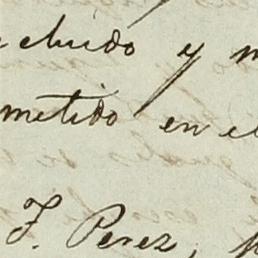 cluido y m
metido en el
F. Perez,